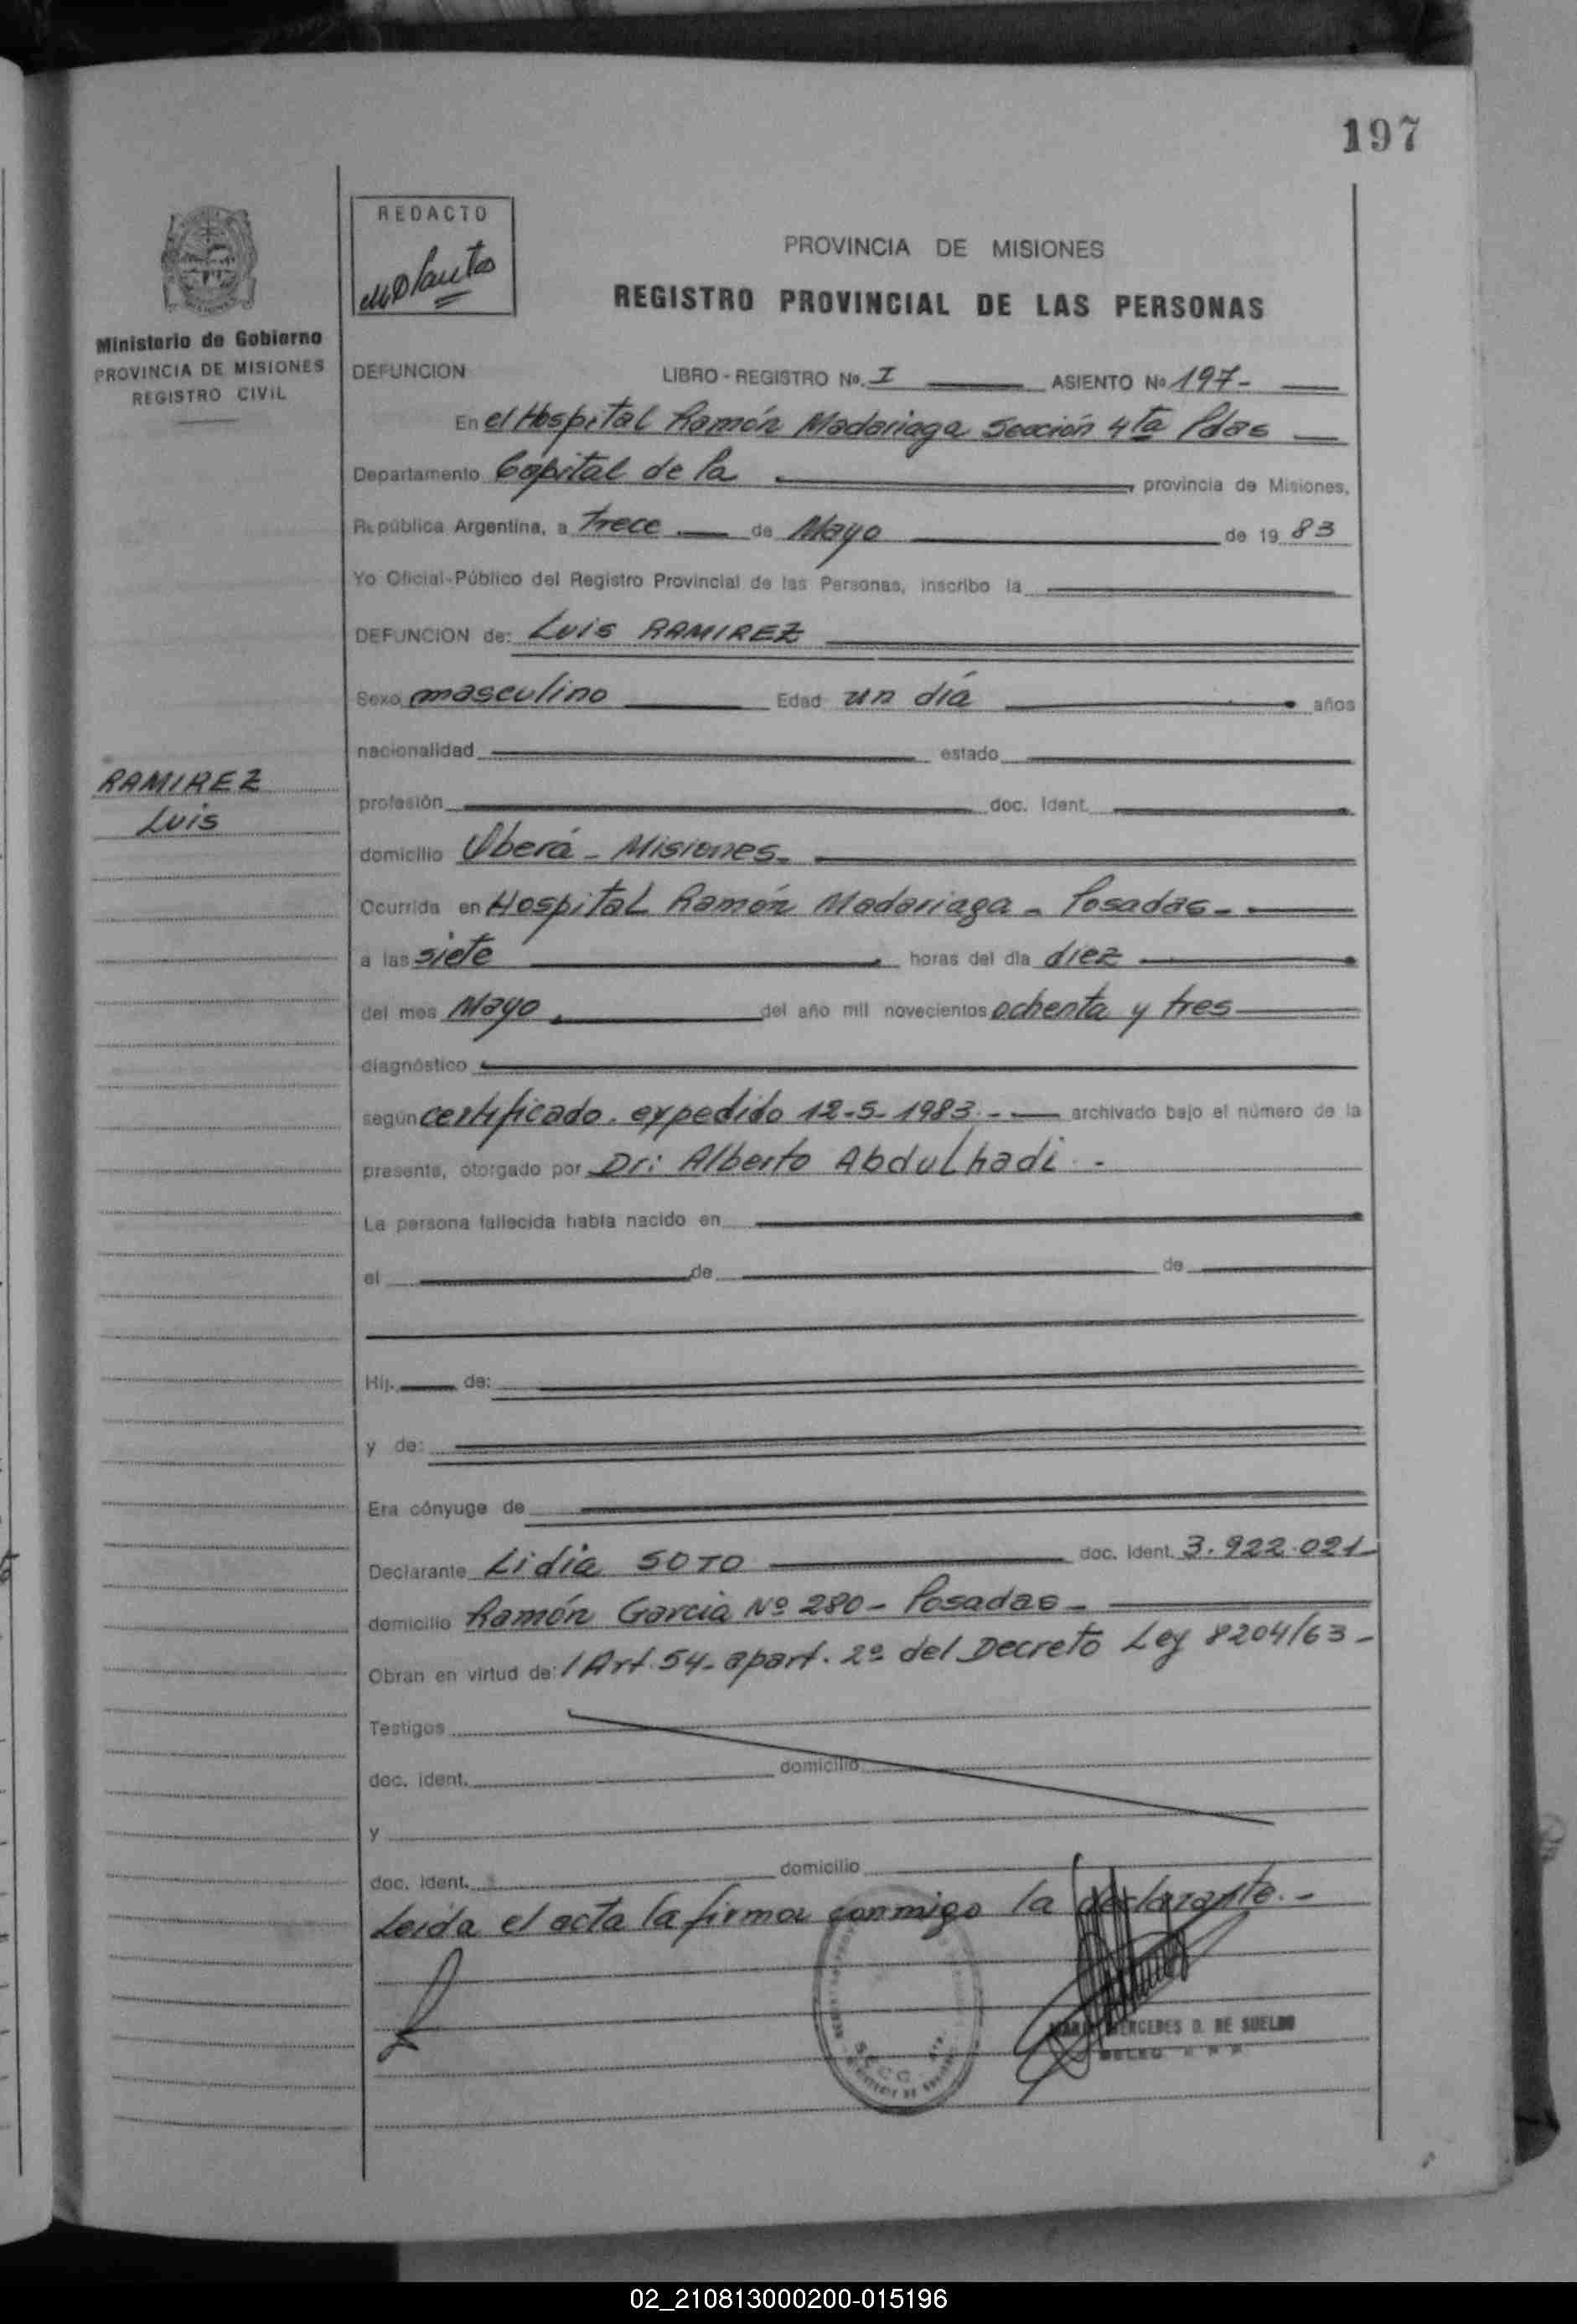 197
REDACTO
PROVINCIA DE MISIONES
REGISTRO PROVINCIAL DE LAS PERSONAS
Ministerio de Gobierno
PROVINCIA DE MISIONES
REGISTRO CIVIL
DEFUNCION LIBRO - REGISTRO No. I ASIENTO No 197-
En el Hospital Ramón Madariaga Sección 4ta Pdas
Departamento Capital de la provincia de Misiones,
República Argentina, a trece de Mayo de 19 83
Yo Oficial-Público del Registro Provincial de las Personas, inscribo la
DEFUNCION de: Luis RAMIREZ
Sexo masculino Edad un día años
nacionalidad estado
RAMIREZ
Luis
profesión doc. Ident.
domicilio Oberá - Misiones.
Ocurrida en Hospital Ramón Madariaga - Posadas-
a las siete horas del día diez
del mes Mayo del año mil novecientos ochenta y tres
diagnóstico
según certificado. expedido 12-5-1983.- archivado bajo el número de la
presente, otorgado por Dr: Alberto Abdulhadi -
La persona fallecida había nacido en
el de de
Hij. de:
y de:
Era cónyuge de
Declarante Lidia SOTO doc. Ident. 3.922.021-
domicilio Ramón Garcia Nº 280- Posadas-
Obran en virtud de: / Art. 54- apart. 2º del Decreto Ley 8204/63-
Testigos
doc. ident. domicilio
y
doc. ident. domicilio
Leída el acta la firma conmigo la declarante.-
MERCEDES D. DE SUELDO
02_210813000200-015196